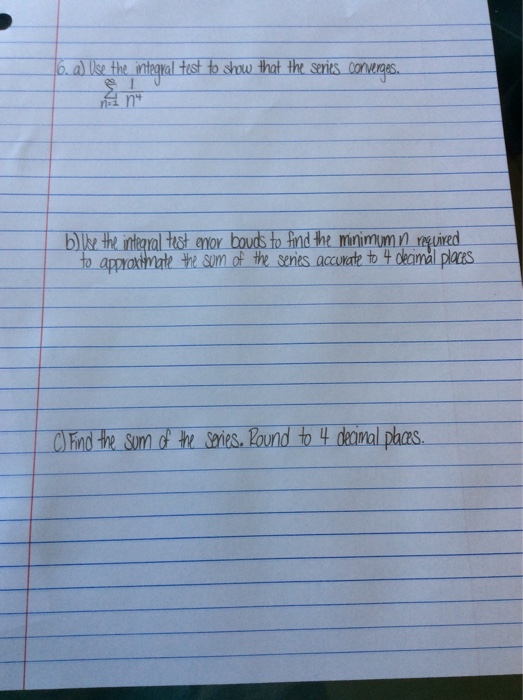 6. a) Use the integral test to show that the series converges.
∞
Σ 1/n⁴
n=1
b) Use the integral test error bouds to find the minimum n required
to approximate the sum of the series accurate to 4 decimal places
c) Find the sum of the series. Round to 4 decimal places.